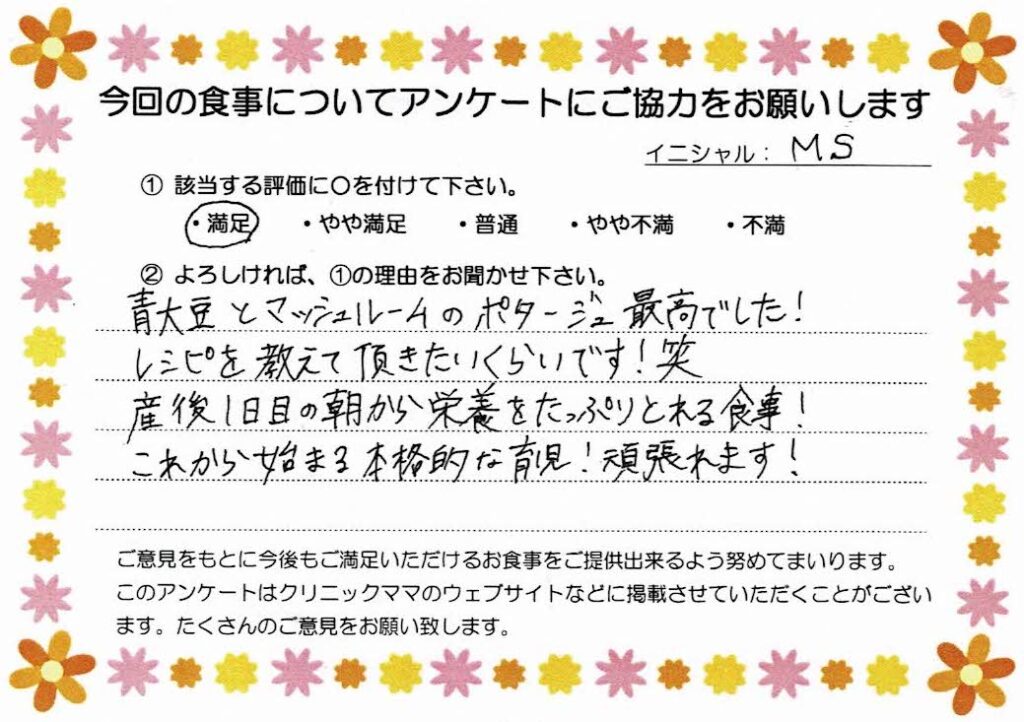 今回の食事についてアンケートにご協力をお願いします
イニシャル： MS
① 該当する評価に〇を付けて下さい。
・満足 ・やや満足 ・普通 ・やや不満 ・不満
② よろしければ、①の理由をお聞かせ下さい。
青大豆とマッシュルームのポタージュ最高でした！
レシピを教えて頂きたいくらいです！笑
産後1日目の朝から栄養をたっぷりとれる食事！
これから始まる本格的な育児！頑張れます！
ご意見をもとに今後もご満足いただけるお食事をご提供出来るよう努めてまいります。
このアンケートはクリニックママのウェブサイトなどに掲載させていただくことがござい
ます。たくさんのご意見をお願い致します。